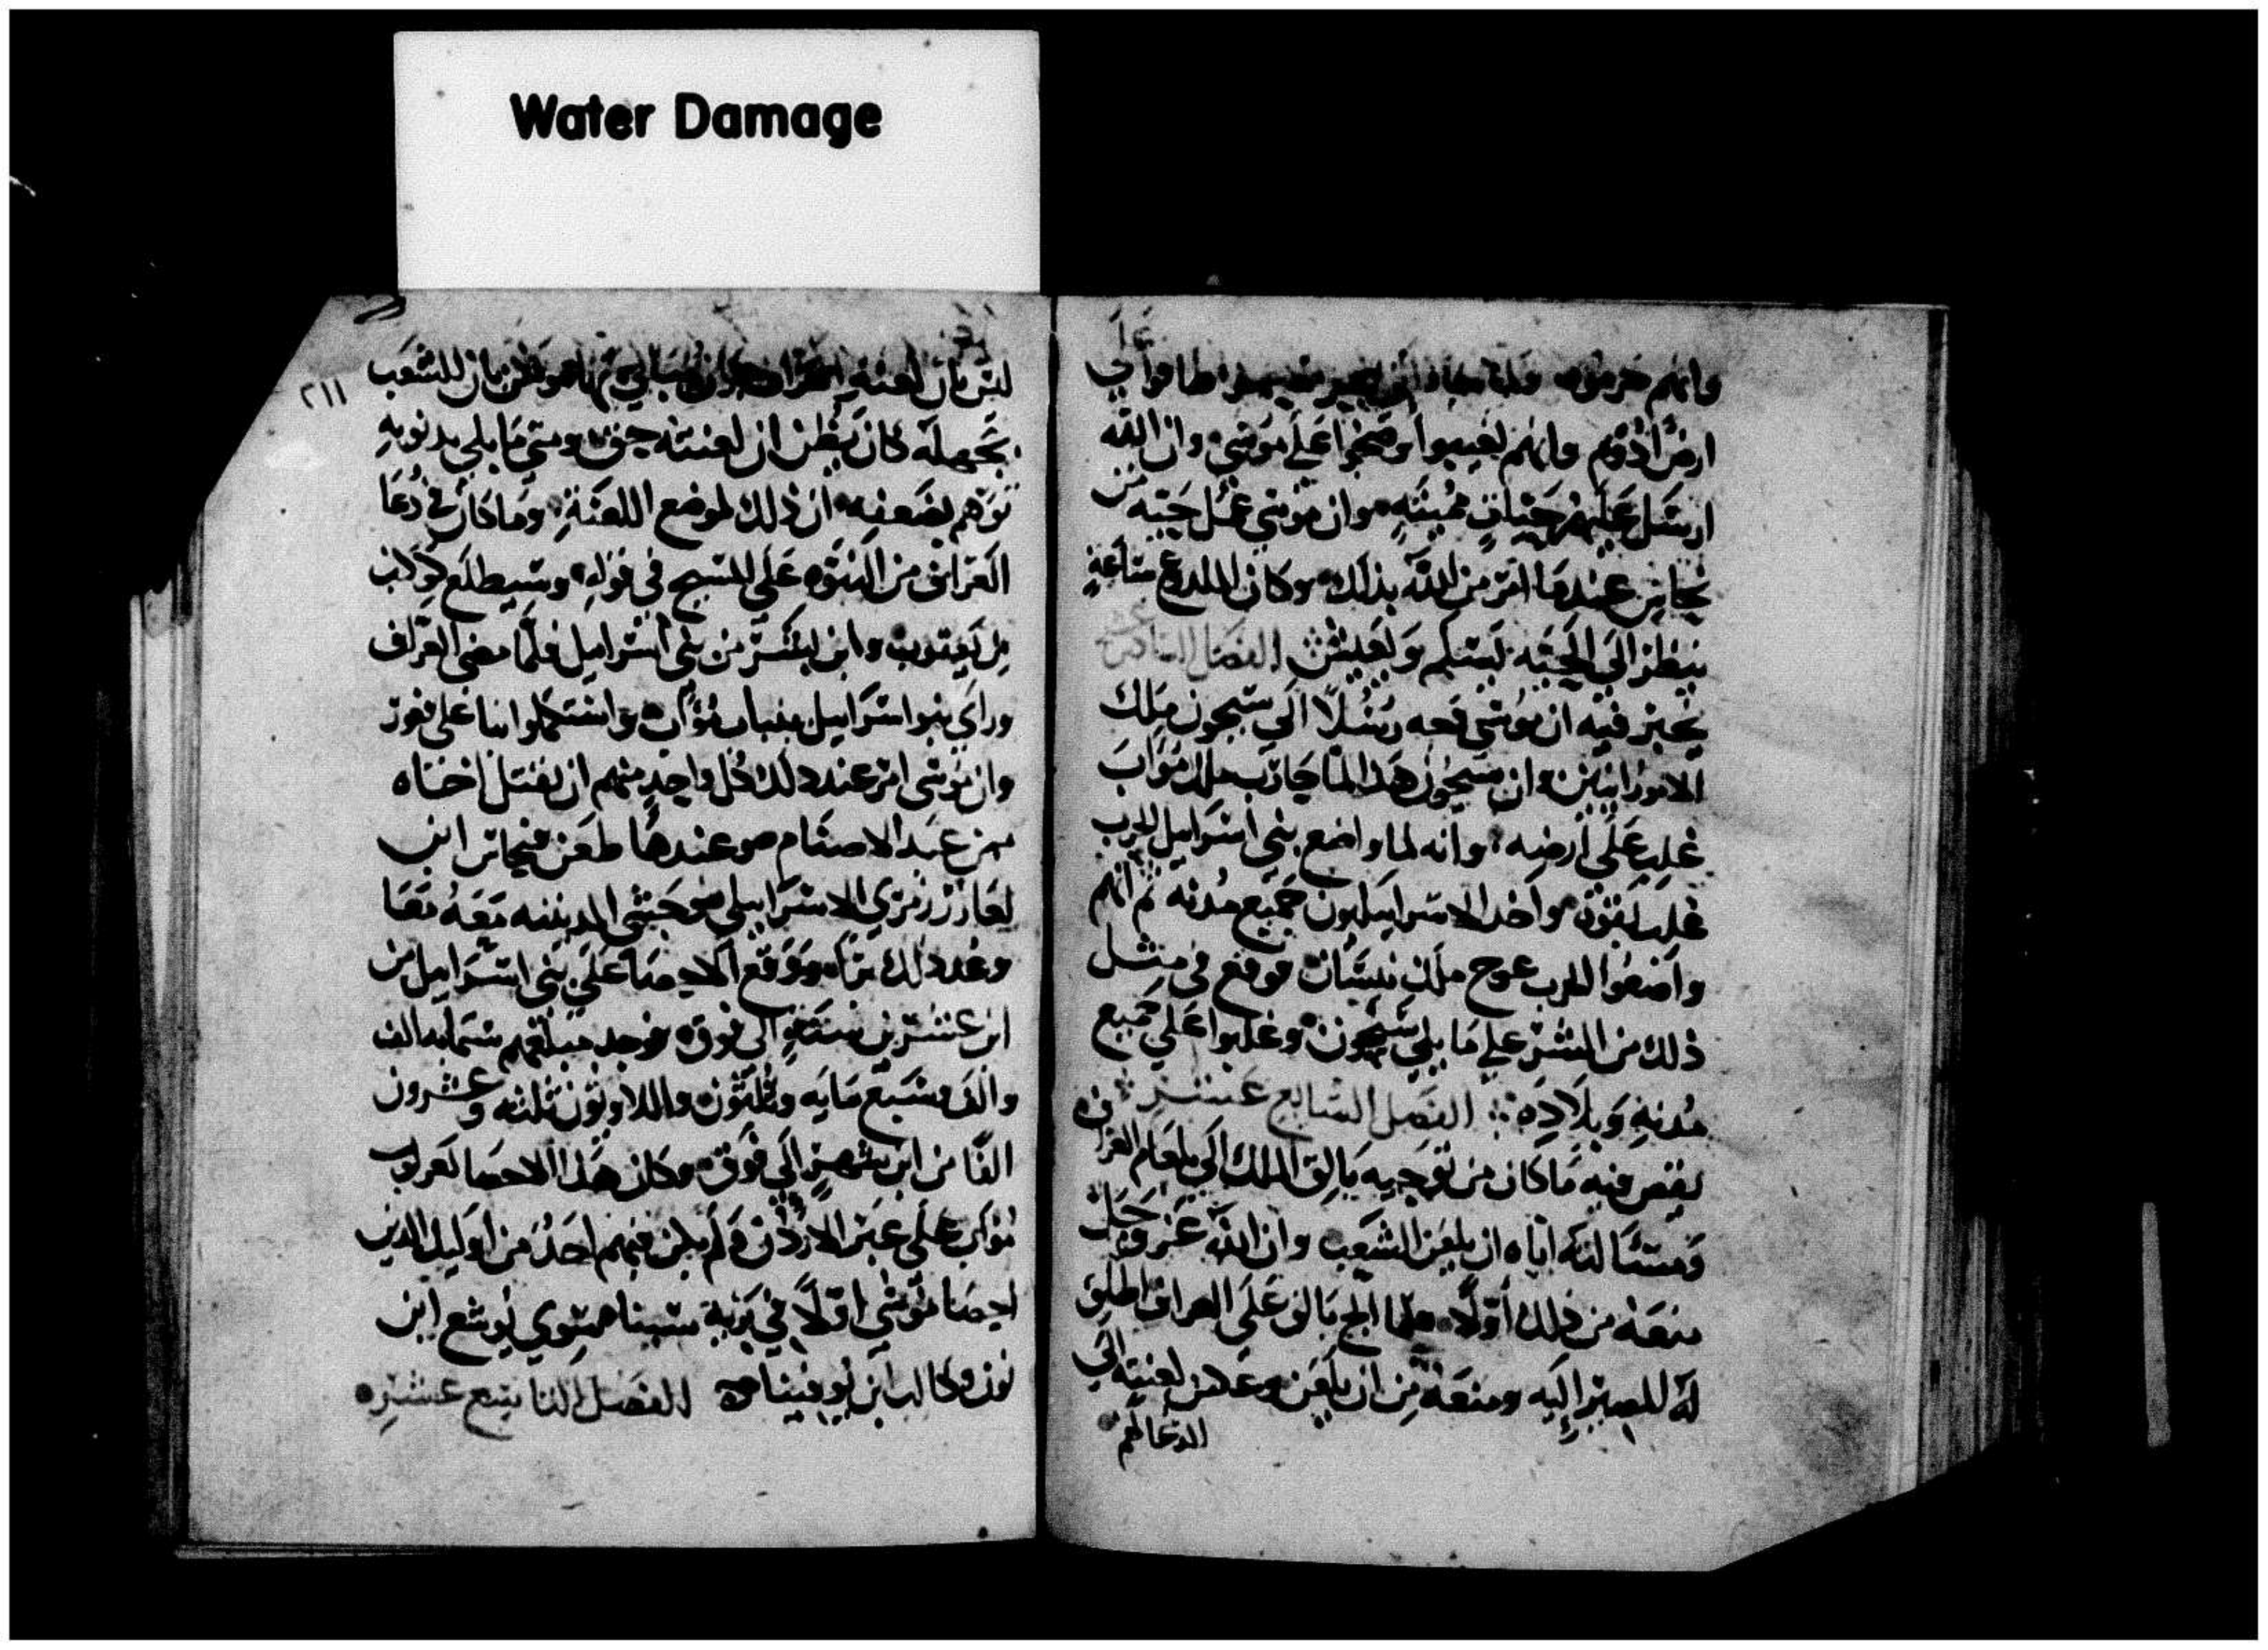 Water Damage
وانهم حرموه
ارض ادوم وانهم لغيبوا وضجوا علي موسي وان الله
ارسل عليهم حيات مميته وان موسي عمل حيه من
نحاس عندما امر من الله بذلك وكان الملدوع ساعة
ينظر الي الحيه يسلم ويعيش الفصل السادس عشر
يخبر فيه ان موسي وجه رسلا الي سيحون ملك
الامورانيين وان سيحون هذا لما حارب ملك مواب
غلب علي ارضه وانه لما واضع بني اسرايل الحرب
غلب بقوه واخد الاسرايليون جميع مدنه ثم انهم
واضعوا الحرب عوج ملك نيسان فوقع في مثل
ذلك من الشر علي ما بلي سيحون وغلبوا علي جميع
مدنه وبلاده الفصل السابع عشر
يقص فيه ما كان من توجيه بالق الملك الي بلعام العراف
ومسالته اياه ان يلعن الشعب وان الله عز وجل
منعه من ذلك اولا فلما الح بالق علي العراف اطلق
له المصير اليه ومنعه من ان يلعن وعكس لعنته الي
الدعا لهم
٢١١
ليس بان لعنة العراف
بجهله كان يظن ان لعنته حق ومتي ما بلي بدنوبه
توهم بضعفه ان ذلك لموضع اللعنة وما كان في دعا
العراف من النبوه علي المسيح في قوله وسيطلع كوكب
من يعقوب وابن البشر من بني اسرايل فلما مضي العراف
وراي بنو اسرايل بنات مواب واستكملوا انبا علي فغور
وان موسي امر عند ذلك كل واحد منهم ان يقتل اخناه
ممن عبد الاصنام وعندها طعن فيحاس ابن
لعازر زمري الاسرايلي وحبشي المدينيه معه معا
وعدد ذلك مراه ووقع الاحصا علي بني اسرايل من
ابن عشرين سنة الي فوق فوجد مبلغهم ستمايه الف
والف وسبع مايه وثلثون واللاويون ثلثه وعشرون
الفا من ابن شهر الي فوق وكان هذا الاحصا لعربوت
مواب علي عبر الاردن ولم يكن فيهم احد من اوليك الدين
احصا موسي اولا في برية سينا سوي يوشع ابن
نون وكالب ابن يوفينا الفصل التاسع عشر